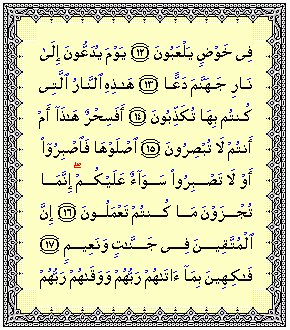 فِى خَوْضٍ يَلْعَبُونَ ﴿١٢﴾ يَوْمَ يُدَعُّونَ إِلَىٰ
نَارِ جَهَنَّمَ دَعًّا ﴿١٣﴾ هَـٰذِهِ ٱلنَّارُ ٱلَّتِى
كُنتُم بِهَا تُكَذِّبُونَ ﴿١٤﴾ أَفَسِحْرٌ هَـٰذَآ أَمْ
أَنتُمْ لَا تُبْصِرُونَ ﴿١٥﴾ ٱصْلَوْهَا فَٱصْبِرُوٓا۟
أَوْ لَا تَصْبِرُوا۟ سَوَآءٌ عَلَيْكُمْ ۖ إِنَّمَا
تُجْزَوْنَ مَا كُنتُمْ تَعْمَلُونَ ﴿١٦﴾ إِنَّ
ٱلْمُتَّقِينَ فِى جَنَّـٰتٍ وَنَعِيمٍ ﴿١٧﴾
فَـٰكِهِينَ بِمَآ ءَاتَىٰهُمْ رَبُّهُمْ وَوَقَىٰهُمْ رَبُّهُمْ